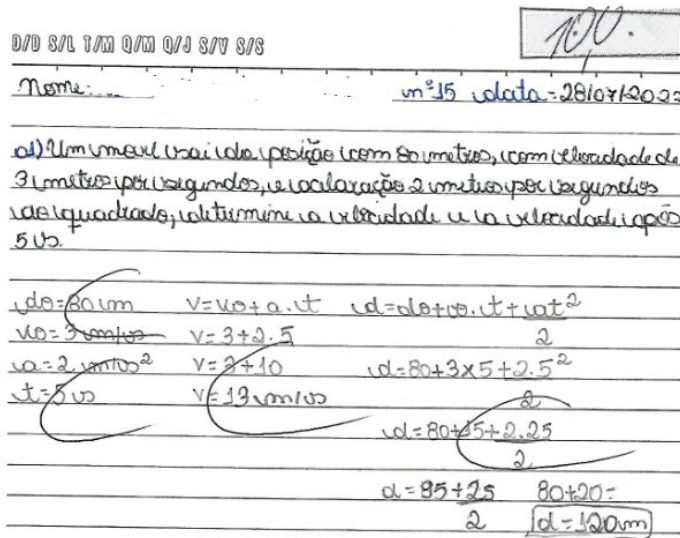 D/D S/L T/M Q/M Q/J S/V S/S
10,0.
Nome:
nº 15 data = 28/07/202
a) Um movel sai da posição com 80 metros, com velocidade de
3 metros por segundos, e acalaração 2 metros por segundos
ao quadrado, determine a velocidade e a velocidade após
5 s.
do = 80 m v = vo + a . t d = do + vo . t + at²
2
vo = 3 m/s v = 3 + 2 . 5
a = 2 m/s² v = 3 + 10 d = 80 + 3 x 5 + 2 . 5²
t = 5 s v = 13 m/s 2
d = 80 + 15 + 2 . 25
2
d = 95 + 25 80 + 20 =
2 d = 120 m